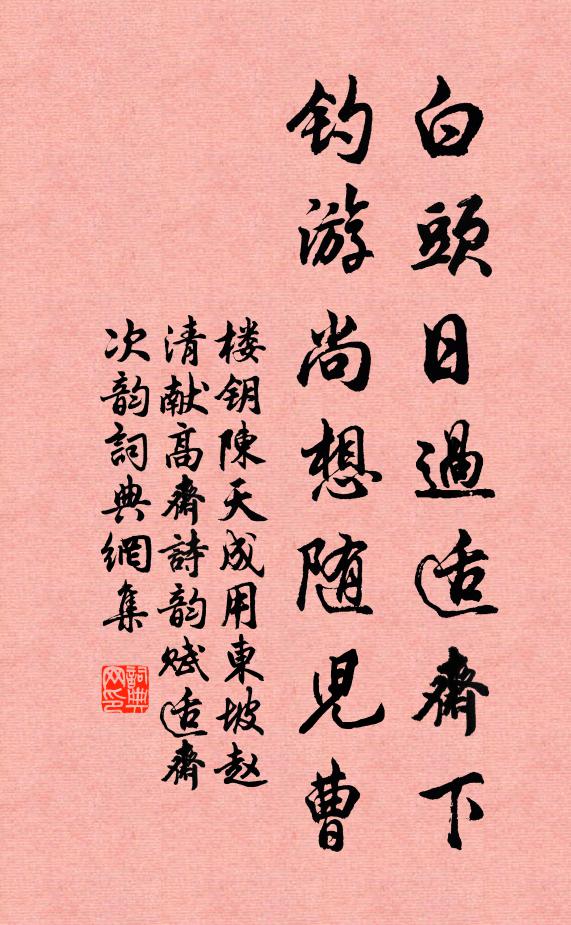 白頭日過适齋下
钓游尚想随児曹
楼钥陳天成用東坡赵
清献髙齋詩韵赋适齋
次韵詞典網集
詞典
网印